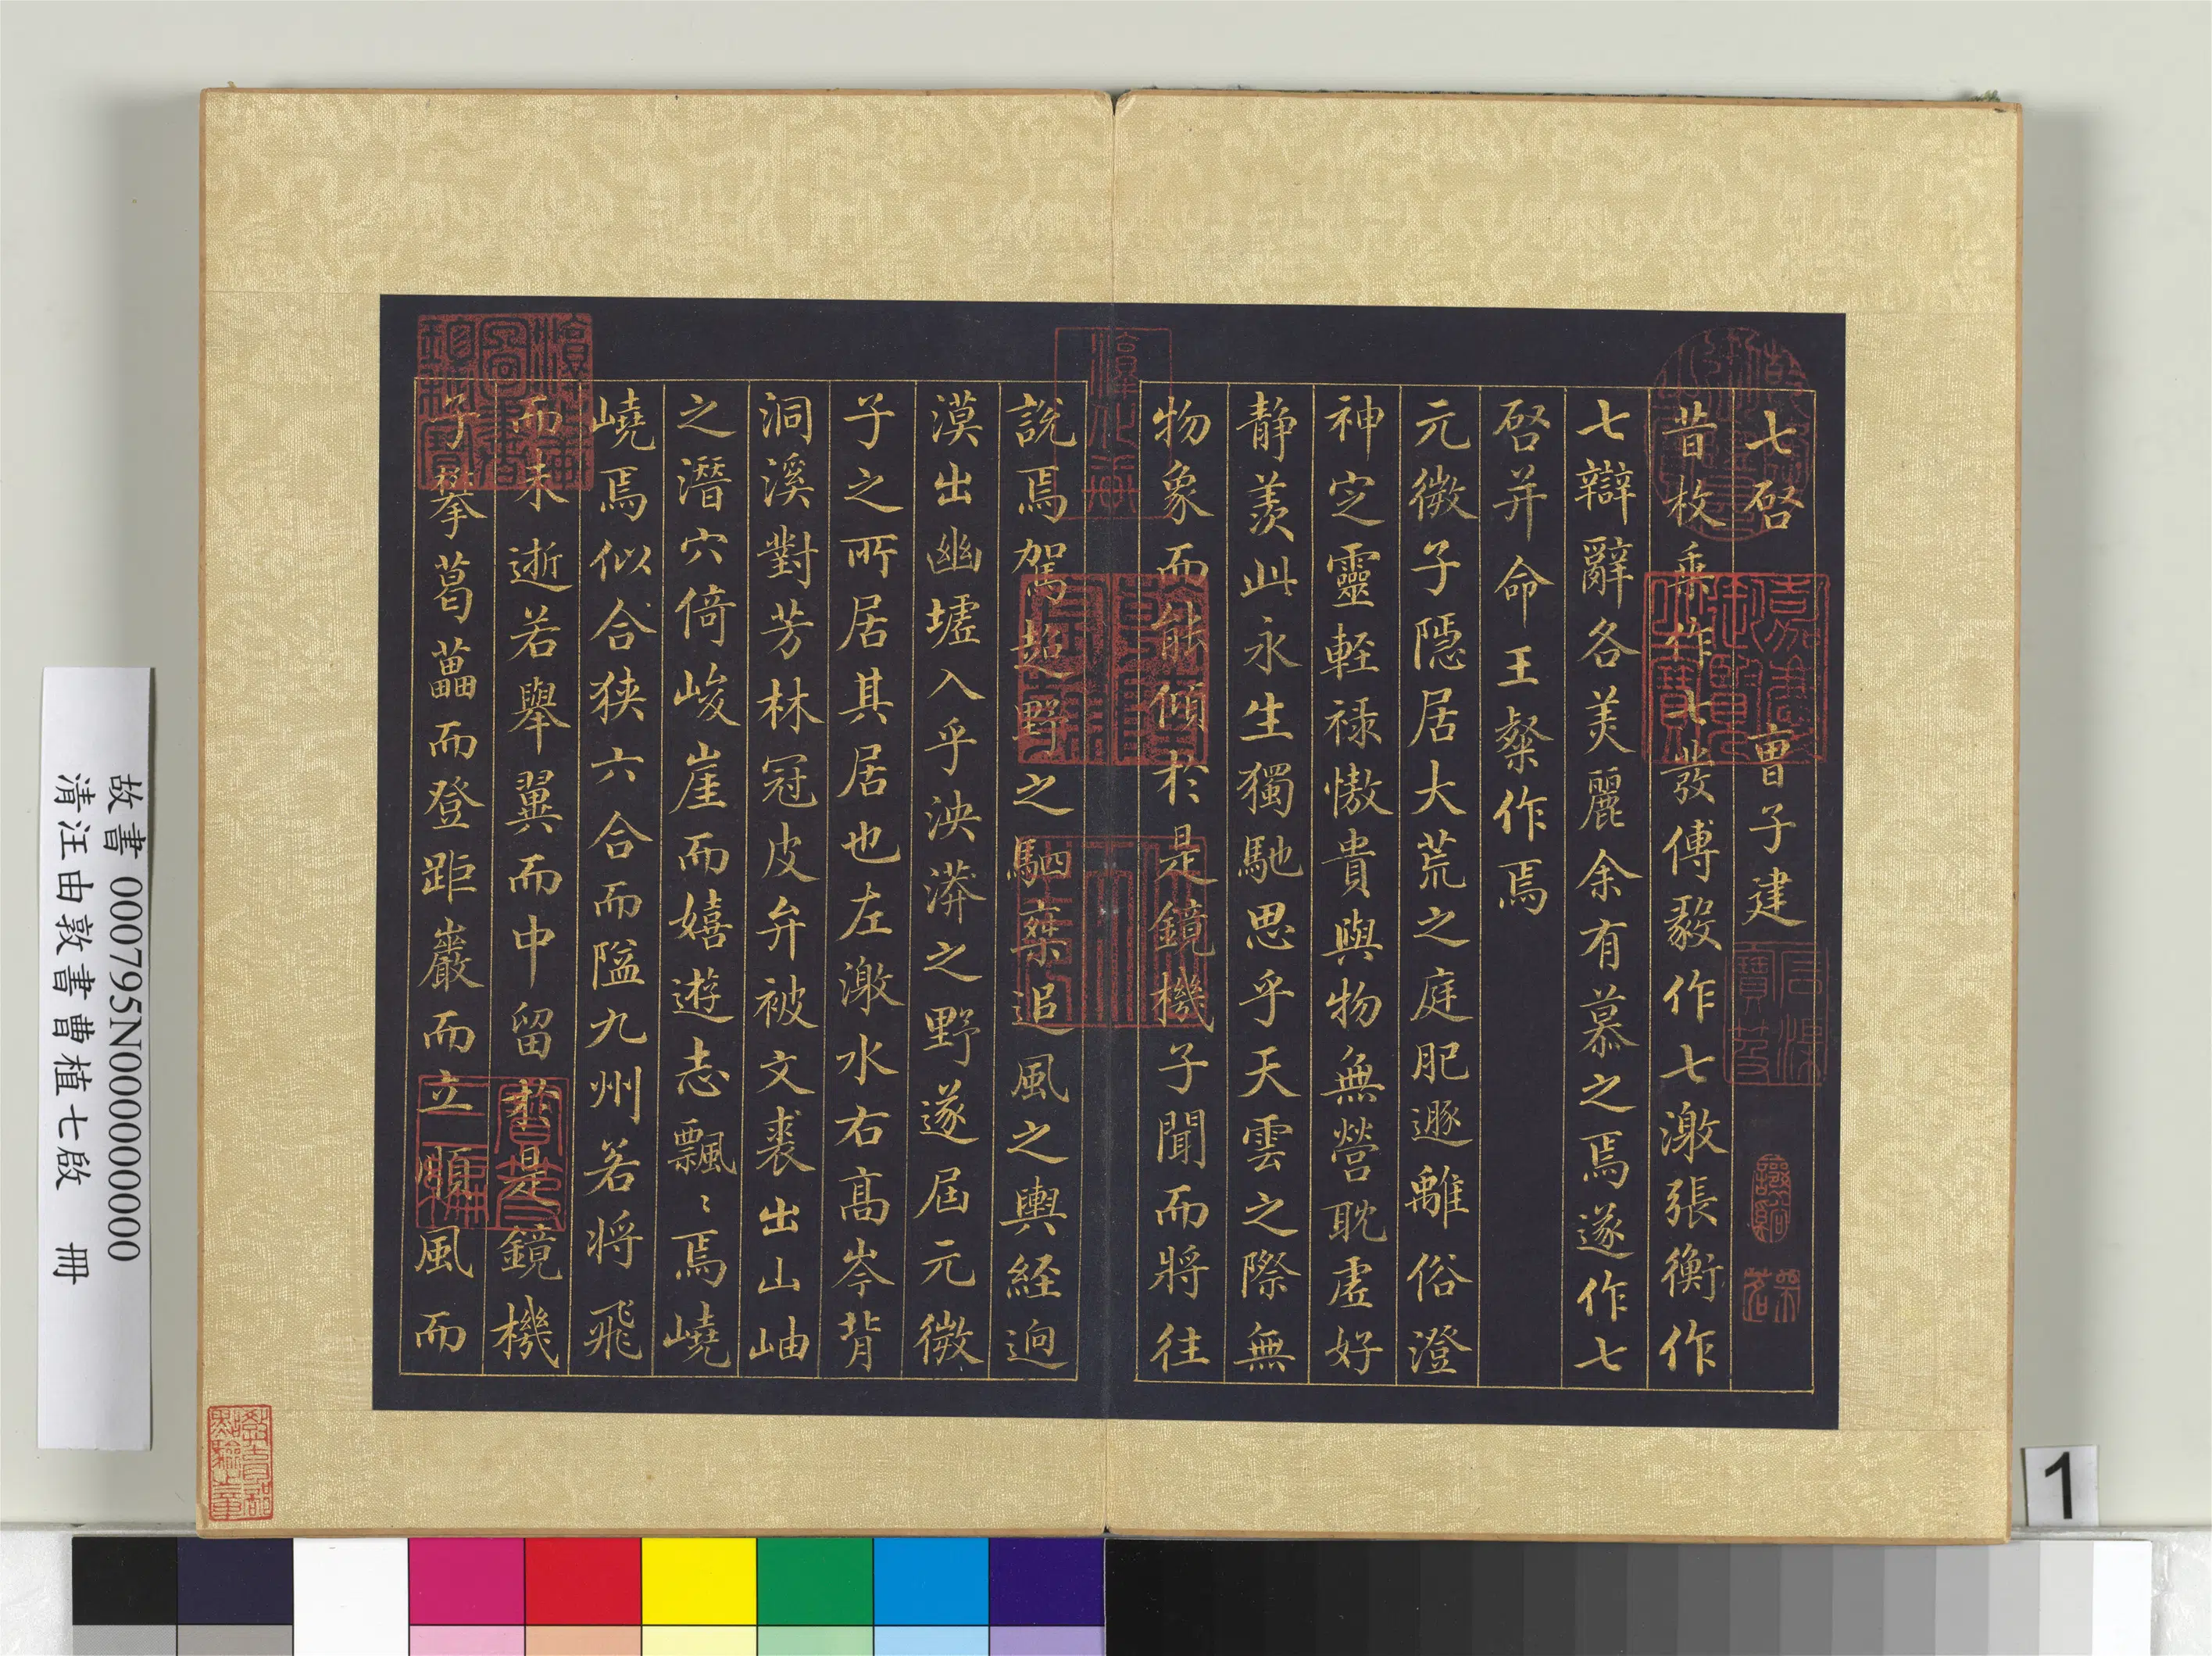 七啓 曹子建
昔枚乘作七發傅毅作七激張衡作
七辯辭各美麗余有慕之焉遂作七
啓并命王粲作焉
元微子隱居大荒之庭肥遯離俗澄
神定靈輕祿慠貴與物無營耽虛好
靜羨此永生獨馳思乎天雲之際無
物象而能傾於是鏡機子聞而將往
說焉駕超野之駟乘追風之輿経迥
漠出幽墟入乎泱漭之野遂屆元微
子之所居其居也左激水右高岑背
洞溪對芳林冠皮弁被文裘出山岫
之潛穴倚峻崖而嬉遊志飄〻焉嶢
嶢焉似合狹六合而隘九州若將飛
而未逝若舉翼而中留於是鏡機
子攀葛藟而登距巖而立順風而
嘉慶御覽之寶
石渠寶笈
淳化軒
故書 000795N000000000
清汪由敦書曹植七啟 冊
1